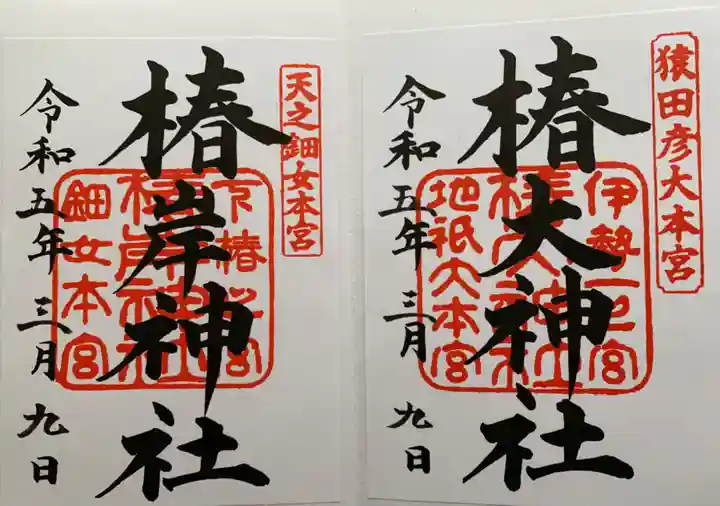 天之鈿女本宮
椿岸神社
鈿女本宮
令和五年 三月 九日
猿田彦大本宮
椿大神社
伊勢一之宮
地祇大本宮
令和五年 三月 九日